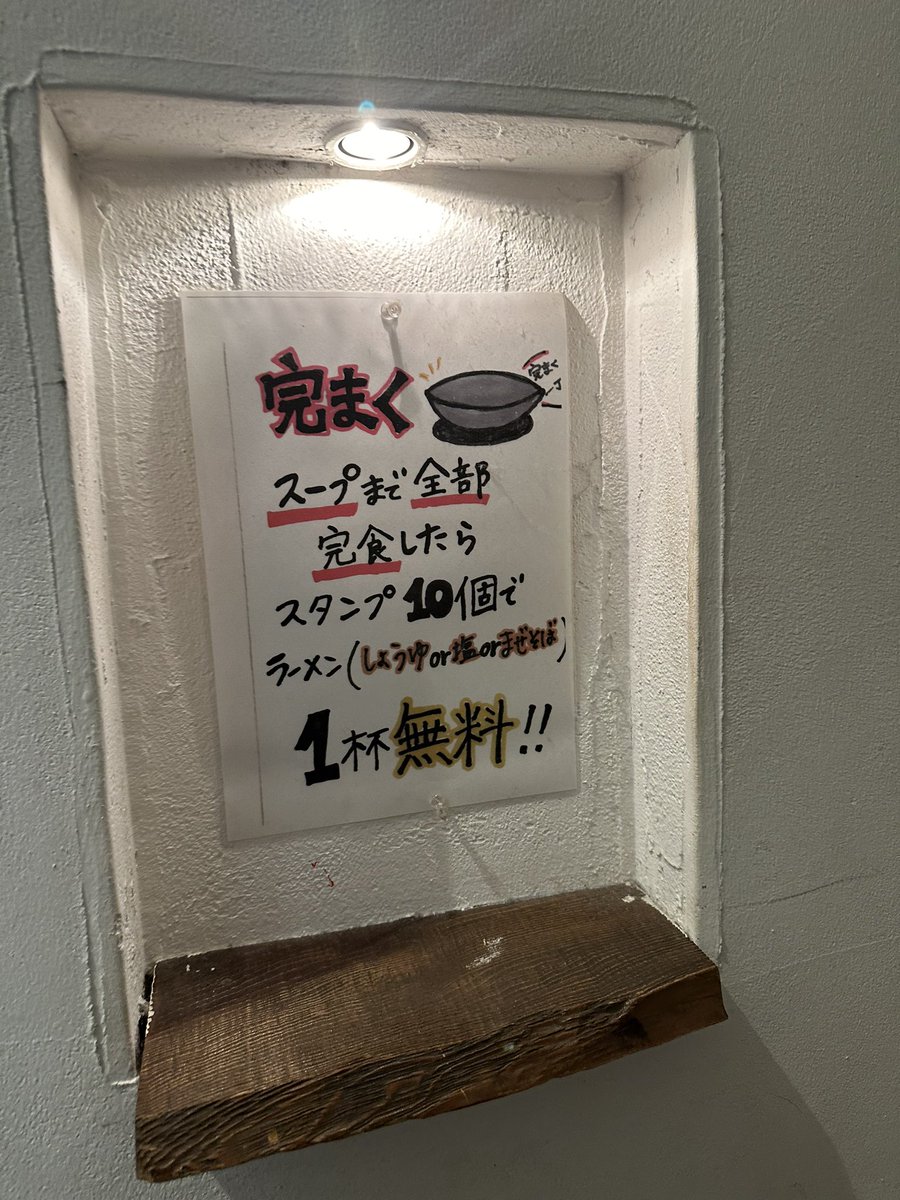 完まく
完まく
スープまで全部
完食したら
スタンプ10個で
ラーメン(しょうゆor塩orまぜそば)
1杯無料!!